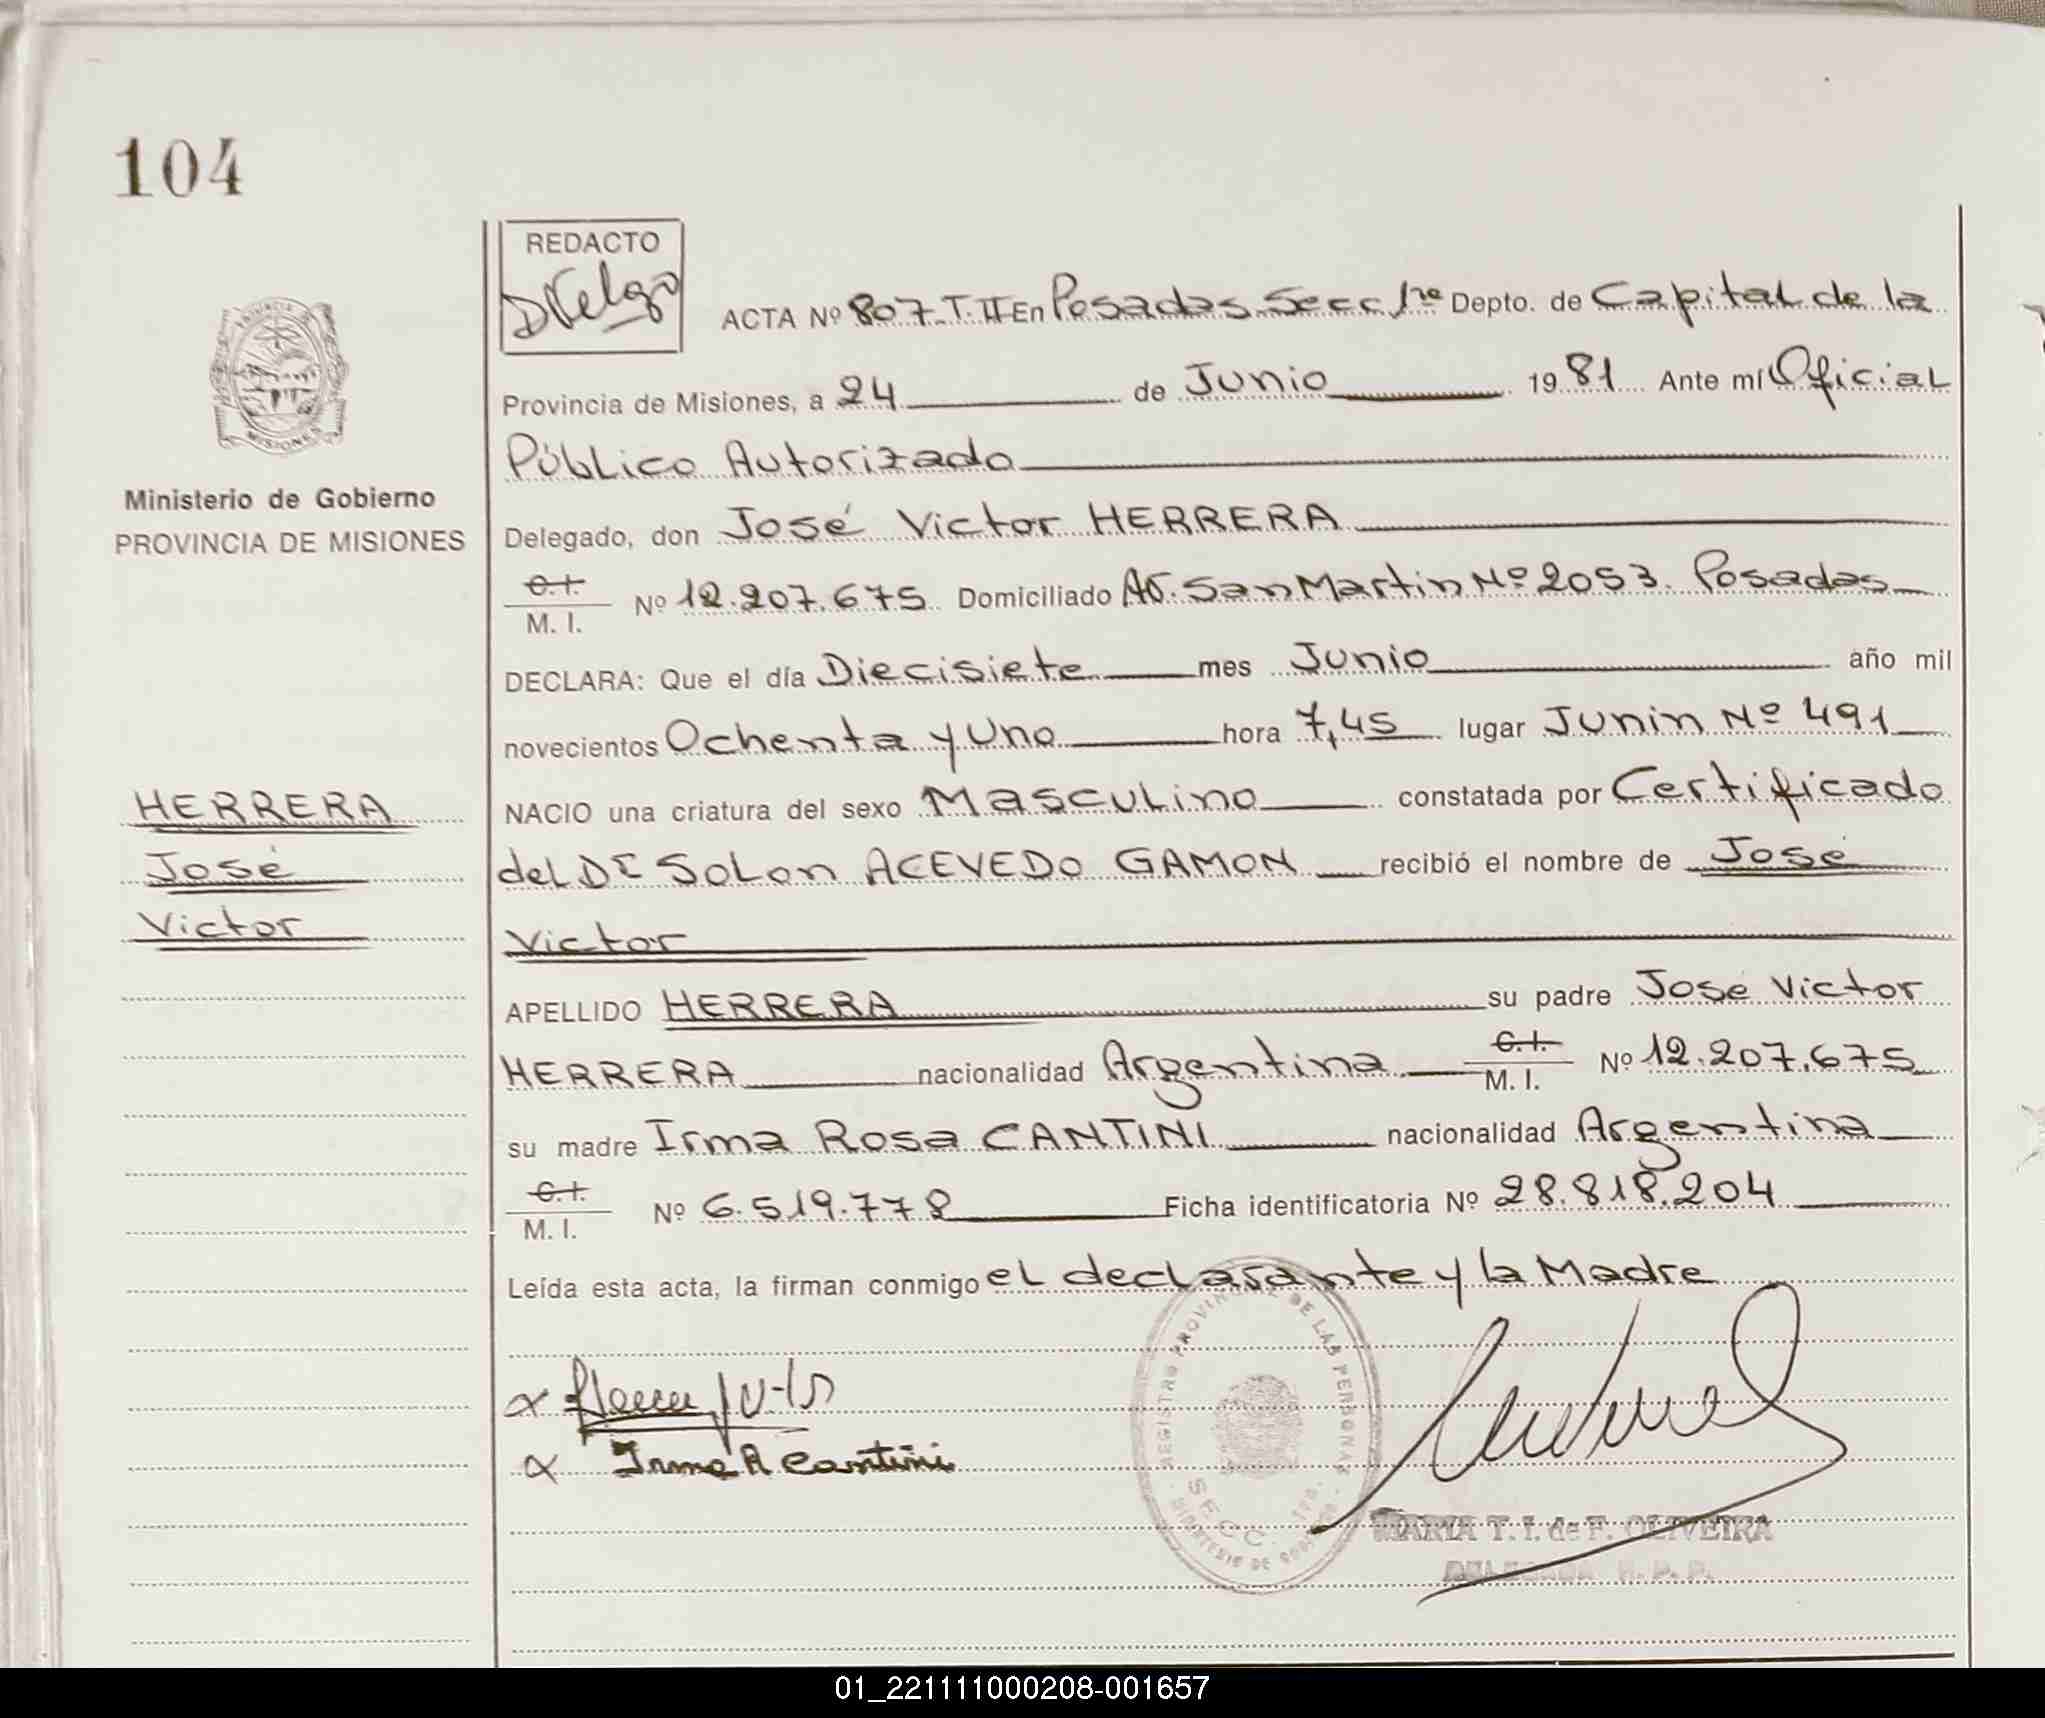 104
REDACTO
ACTA Nº 807 T. II En Posadas Secc 1ra Depto. de Capital de la
Provincia de Misiones, a 24 de Junio 1981 Ante mí Oficial
Público Autorizado
Ministerio de Gobierno
PROVINCIA DE MISIONES
Delegado, don José Victor HERRERA
C.I.
M. I. Nº 12.207.675 Domiciliado Av. San Martin Nº 2053. Posadas
DECLARA: Que el día Diecisiete mes Junio año mil
novecientos Ochenta y Uno hora 7,45 lugar Junin Nº 491
HERRERA
José
Victor
NACIO una criatura del sexo Masculino constatada por Certificado
del Dr Solon ACEVEDO GAMON recibió el nombre de José
Victor
APELLIDO HERRERA su padre José Victor
HERRERA nacionalidad Argentina C.I. M. I. Nº 12.207.675
su madre Irma Rosa CANTINI nacionalidad Argentina
C.I.
M. I. Nº 6.519.778 Ficha identificatoria Nº 28.818.204
Leída esta acta, la firman conmigo el declarante y la Madre
Irma R Cantini
REGISTRO PROVINCIAL DE LAS PERSONAS
SECC. 1ra.
MINISTERIO DE GOBIERNO
MARIA T. I. de F. OLIVEIRA
DELEGADA R. P. P.
01_221111000208-001657